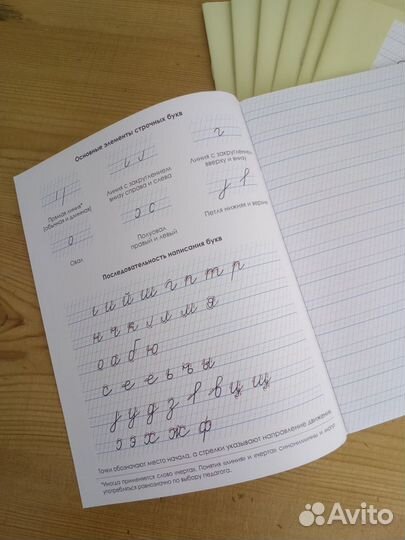 Основные элементы строчных букв
Прямая линия*
(обычная и длинная)
Линия с закруглением
внизу справа и слева
Линия с закруглением
вверху и внизу
Овал
Полуовал
правый и левый
Петля нижняя и верхн
Последовательность написания букв
и й ш г п т р
н ч к л м я
о а б ю
с е ё ь ъ ы
у д з в ц щ
э х ж ф
Точки обозначают место начала, а стрелки указывают направление движения
*Иногда применяется слово «черта». Понятия «линия» и «черта» синонимичны и могут
употребляться равнозначно по выбору педагога.
Avito